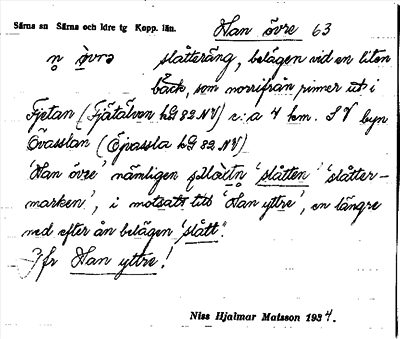 Särna sn Särna och Idre tg Kopp. län. Han övre 63
slåtteräng, belägen vid en liten
bäck, som norrifrån rinner ut i
Fjetan (Fjätälven hG 82 NV) c:a 4 km. SV byn
Övasslan (Åpassla hG 82 NV)
'Han övre' nämligen 'slåtten' 'slåtter-
marken', i motsats till 'Han yttre', en längre
ned efter ån belägen 'slått'.
Jfr Han yttre!
Niss Hjalmar Matsson 1934.